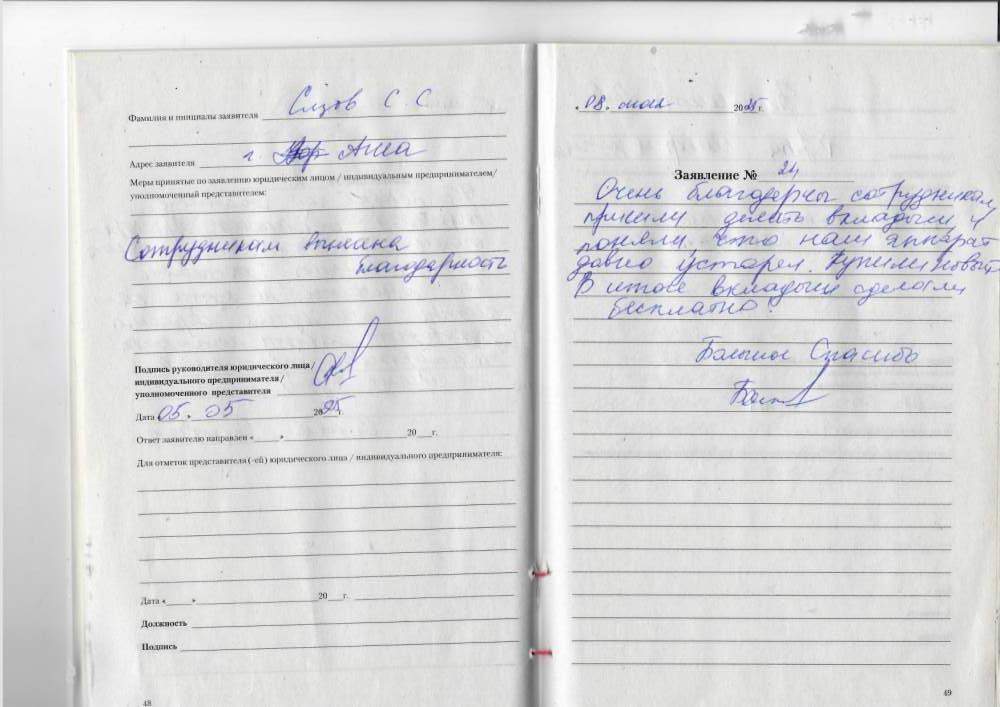 Фамилия и инициалы заявителя С С
Адрес заявителя г.
Меры принятые по заявлению юридическим лицом / индивидуальным предпринимателем/
уполномоченный представителем:
Сотрудникам вынлина
благодарность
Подпись руководителя юридического лица /
индивидуального предпринимателя /
уполномоченного представителя
Дата «05 » 05 2025г.
Ответ заявителю направлен «______» 20___г.
Для отметок представителя (-ей) юридического лица / индивидуального предпринимателя:
Дата «______» 20___г.
Должность
Подпись
48
«08» мая 2025 г.
Заявление № 24
Очень благодарны сотрудникам,
пришли делать вкладыши и
поняли, что наш аппарат
давно устарел. Купили новый.
В итоге вкладыши сделали
бесплатно!
Большое Спасибо
49